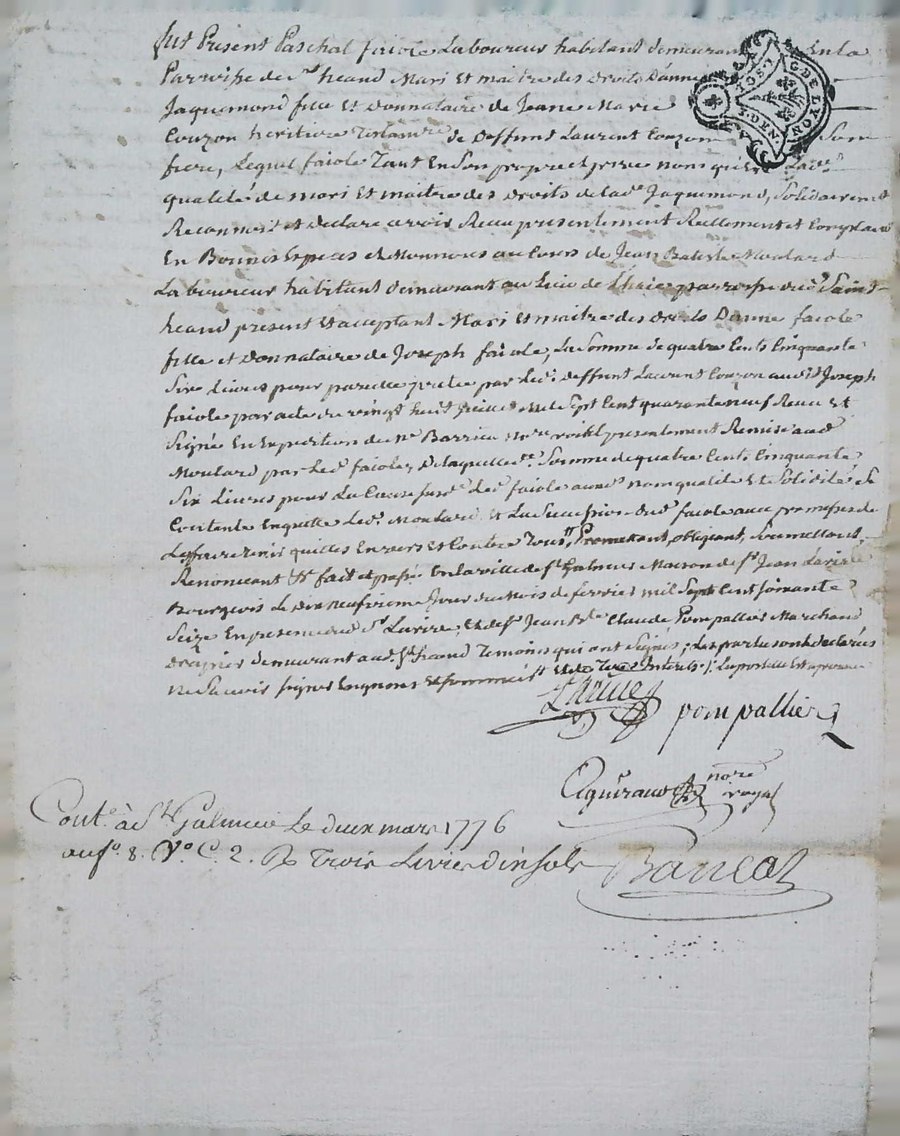 fut Présent Paschal faiole Laboureur habitant demeurant En la
Parroisse de St. heand Mari Et maitre des Droits Danne
Jaquemond fille Et Donnataire de Jeane Marie
Couzon héritière Testamre de Deffunt Laurent Couzon Son
frere, Lequel faiole Tant En Son propre et privé nom qu'en Lade.
qualité de mari Et maitre des Droits de lade. Jaquemond, Solidairemt
Reconnoit et declare avoir Recu presentement Réellement et
En Bonnes Espèces de Monnoies au Cours de Jean Batiste Moulard
Laboureur habitant demeurant au Lieu de parroisse dud. Saint
heand present Et acceptant Mari Et maitre des droits Danne faiole
fille et Donnataire de Joseph faiole, La Somme de quatre Cents Cinquante
Six Livres pour pareille pretée par Led. deffunt Laurent Couzon aud. Joseph
faiole par acte du vingt huit Juillet mil Sept Cent quarante neuf Recu Et
Signé En Expedition de Me Barrieu nore Roial presentement Remise aud.
Moulard par Led. faiole, De laquelle de. Somme de quatre Cents Cinquante
Six Livres pour La Cause Susde. Led. faiole auxd. nom qualité Et Solidité Se
Contente En quitte Led. Moulard Et La Succession dud. faiole avec promesses de
Les faire tenir quittes Envers Et Contre Tous, Promettant, obligeant, Soumettant,
Renoncant &c fait et passé En la ville de St. Galmier Maison de Sr. Jean
Bourgeois Le dix neufvieme Jour du Mois de fevrier mil Sept Cent soixante
Seize En presence dud. Sr. Et de Sr. Jean Bte. Claude Pompallier Marchand
drapier demeurant aud. St. heand Temoins qui ont Signés; Les parties ont declarées
ne Savoir Signer Enquises Et Sommées Et de Tous Interets /: La postille Est approuvée
pompallier
nore
royal
GEN. DE LYON
Conté. à St. Galmier Le deux mars 1776
au fo. 8. Vo. C. 2. Rx Trois Livres dix sols
Barrieu